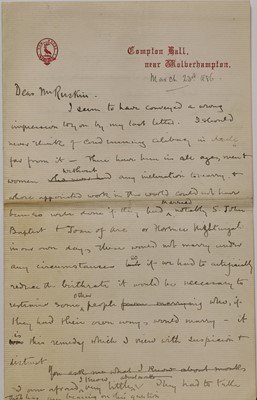 Compton Hall,
near Wolverhampton.
March 23rd 1886.
Dear Mr Ruskin
I seem to have conveyed a wrong
impression to you by my last letter. I should
never think of condemning celibacy is
far from it - There have been in all ages, men &
women without any inclination to marry &
whose appointed work in the world could not have
been so well done if they had married, notably S. John
Baptist & Joan of Arc or Florence Nightingale
in our own days, these would not marry under
any circumstances & if we had to artificially
reduce the birthrate it would be necessary to
restrain some other people from marrying who, if
they had their own way, would marry - it
is this remedy which I view with suspicion &
distrust
You ask me what I know about
I am afraid, very little. They had to